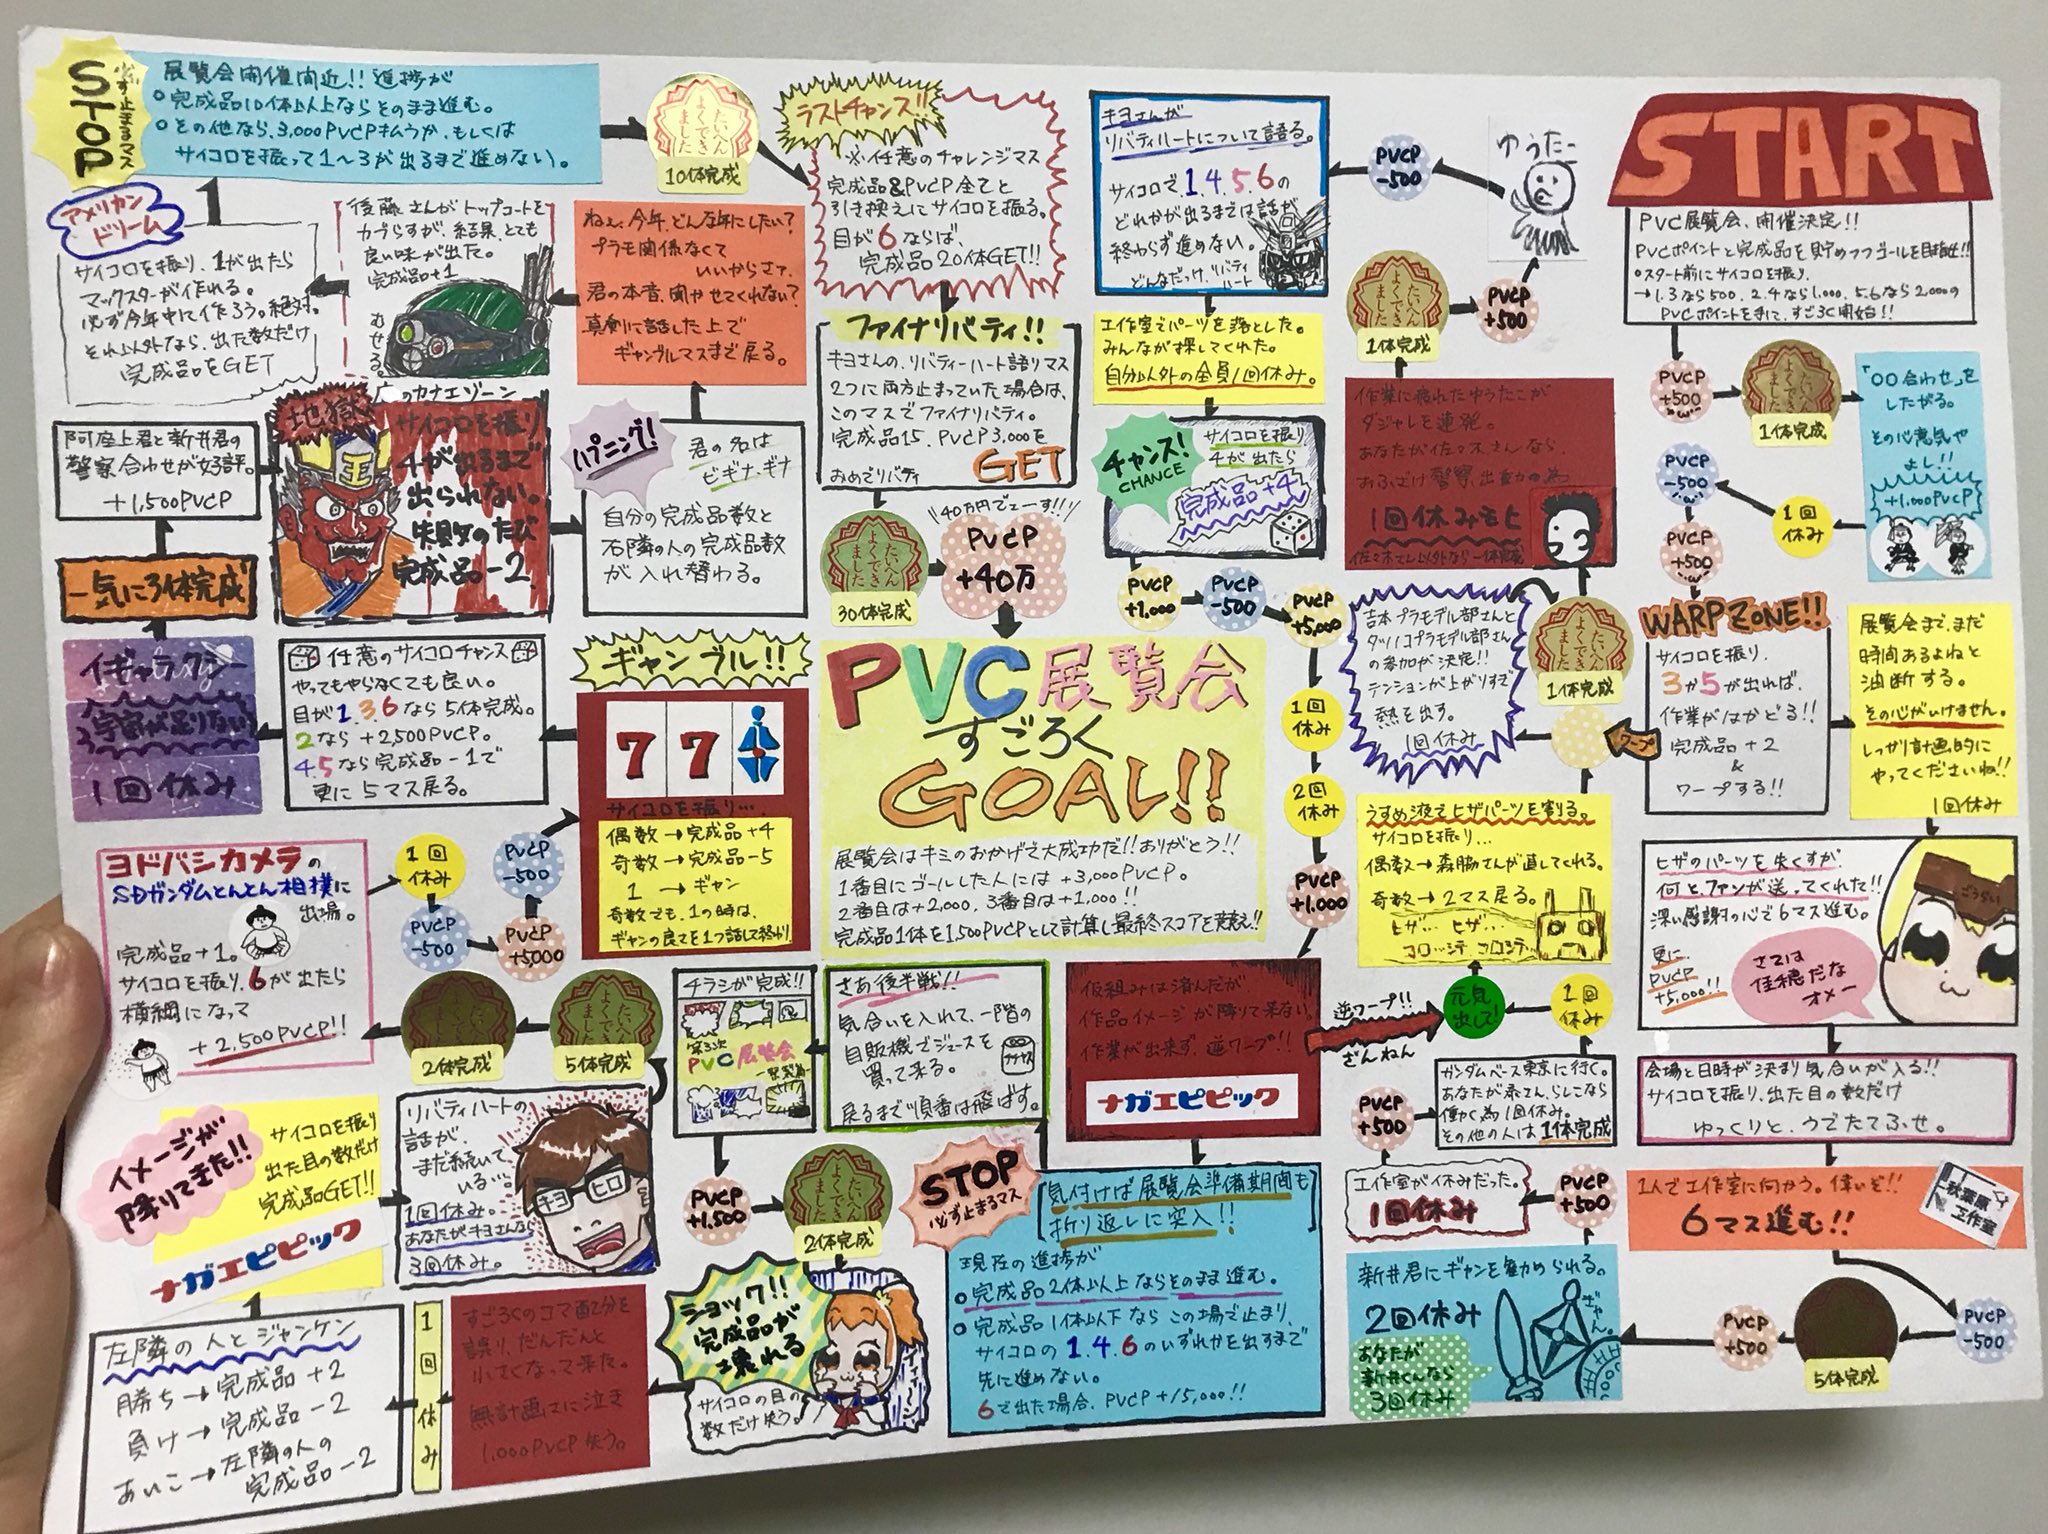 START
PVC展覧会、開催決定!!
PVCポイントと完成品を貯めつつゴールを目指せ!!
○スタート前にサイコロを振り、
→1.3なら500、2.4なら1,000、5.6なら2,000の
PVCポイントを手にして、すごろく開始!!
PVCP
+500
たいへん
よくでき
ました
1体完成
「○○合わせ」を
したがる。
その心意気や
よし!!
+1,000PVCP
1回
休み
PVCP
-500
PVCP
+500
WARP ZONE!!
サイコロを振り、
3か5が出れば、
作業がはかどる!!
完成品+2
&
ワープする!!
ワープ
展覧会まで、まだ
時間あるよねと
油断する。
その心がいけません。
しっかり計画的に
やってくださいね!!
1回休み
ヒザのパーツを失くすが、
何と、ファンが送ってくれた!!
深い感謝の心で6マス進む。
更に
PVCP
+5,000!!
さては
佳穂だな
オメー
会場と日時が決まり気合いが入る!!
サイコロを振り、出た目の数だけ
ゆっくりと、うでたてふせ。
1人で工作室に向かう。偉いぞ!!
6マス進む!!
秋葉原
工作室
PVCP
-500
5体完成
PVCP
+500
新井君にギャンを勧められる。
2回休み
あなたが
新井くんなら
3回休み
ぎゃん。
PVCP
+500
工作室が休みだった。
1回休み
PVCP
+500
ガンダムベース東京に行く。
あなたが泰さん、らしこなら
働く為1回休み。
その他の人は1体完成
1回
休み
元気
出して!
逆ワープ!!
ざんねん
うすめ液でヒザパーツを割る。
サイコロを振り…
偶数→森脇さんが直してくれる。
奇数→2マス戻る。
ヒザ… ヒザ…
コロッシテ コロシテ…
吉本プラモデル部さんと
タツノコプラモデル部さん
の参加が決定!!
テンションが上がりすぎ
熱を出す。
1回休み
たいへん
よくでき
ました
1体完成
作業に疲れたゆうたこが
ダジャレを連発。
あなたが佐々木さんなら、
おふざけ警察出動の為
1回休みモヒ
佐々木さん以外なら一体完成
たいへん
よくでき
ました
1体完成
PVCP
+500
ゆうたー
PVCP
-500
キヨさんが
リバティハートについて語る。
サイコロで、1.4.5.6の
どれかが出るまでは話が
終わらず進めない。
どんなだっけ、リバティ
ハート
工作室でパーツを落とした。
みんなが探してくれた。
自分以外の全員1回休み。
チャンス!
CHANCE
サイコロを振り、
4が出たら
完成品+4
PVCP
+1,000
PVCP
-500
PVCP
+5,000
1回
休み
2回
休み
PVCP
+1,000
仮組みは済んだが
作品イメージが降りて来ない。
作業が出来ず、逆ワープ!!
ナガエピピック
STOP
必ず止まるマス
気付けば展覧会準備期間も
折り返しに突入!!
現在の進捗が
○完成品2体以上ならそのまま進む。
○完成品1体以下ならこの場で止まり、
サイコロの1.4.6のいずれかを出すまで
先に進めない。
6で出た場合、PVCP+15,000!!
さあ後半戦!!
気合いを入れて、一階の
自販機でジュースを
買って来る。
戻るまで順番は飛ばす。
チラシが完成!!
第3次
PVC展覧会
PVCP
+1,500
たいへん
よくでき
ました
2体完成
ショック!!
完成品が
壊れる
サイコロの目の
数だけ失う。
すごろくのコマ配分を
誤り、だんだんと
小さくなって来た。
無計画さに泣き
1,000PVCP失う。
1回休み
左隣の人とジャンケン
勝ち→完成品+2
負け→完成品-2
あいこ→左隣の人の
完成品-2
イメージが
降りてきた!!
サイコロを振り
出た目の数だけ
完成品GET!!
ナガエピピック
リバティハートの
話が、
まだ続いて
いる…。
1回休み。
あなたがキヨさんなら
3回休み。
キヨ ヒロ
たいへん
よくでき
ました
5体完成
2体完成
ヨドバシカメラの
SDガンダムとんとん相撲に
出場。
完成品+1。
サイコロを振り、6が出たら
横綱になって
+2,500PVCP!!
1回
休み
PVCP
-500
PVCP
+5,000
PVCP
-500
ギャンブル!!
7 7
サイコロを振り…
偶数→完成品+4
奇数→完成品-5
1→ギャン
奇数でも、1の時は、
ギャンの良さを1つ話して終わり
任意のサイコロチャンス
やってもやらなくても良い。
目が1.3.6なら5体完成。
2なら+2,500PVCP。
4.5なら完成品-1で
更に5マス戻る。
イギャラクシー
宇宙が足りない
1回休み
一気に3体完成
阿座上君と新井君の
警察合わせが好評。
+1,500PVCP
地獄のカナエゾーン
王
サイコロを振り
4が出るまで
出られない。
失敗のたび
完成品-2
ハプニング!
君の名は
ビギナ・ギナ
自分の完成品数と
右隣の人の完成品数
が入れ替わる。
ねぇ、今年、どんな年にしたい?
プラモ関係なくて
いいからさァ、
君の本音、聞かせてくれない?
真剣に話した上で
ギャンブルマスまで戻る。
後藤さんがトップコートを
カブらすが、結果、とても
良い味が出た。
完成品+1
むせる。
アメリカン
ドリーム
サイコロを振り、1が出たら
マックスターが作れる。
必ず今年中に作ろう。絶対。
それ以外なら、出た数だけ
完成品をGET
STOP
必ず止まるマス
展覧会開催間近!!進捗が
○完成品10体以上ならそのまま進む。
○その他なら、3,000PVCP払うか、もしくは
サイコロを振って1〜3が出るまで進めない。
たいへん
よくでき
ました
10体完成
ラストチャンス!!
※任意のチャレンジマス
完成品&PVCP全てと
引き換えにサイコロを振る。
目が6ならば、
完成品20体GET!!
ファイナリバティ!!
キヨさんの、リバティーハート語りマス
2つに両方止まっていた場合は、
このマスでファイナリバティ。
完成品15、PVCP3,000を
GET
おめでリバティ
たいへん
よくでき
ました
30体完成
40万円でーす!!!
PVCP
+40万
PVC展覧会
すごろく
GOAL!!
展覧会はキミのおかげで大成功だ!!ありがとう!!
1番目にゴールした人には+3,000PVCP。
2番目は+2,000、3番目は+1,000!!
完成品1体を1,500PVCPとして計算し最終スコアを競え!!